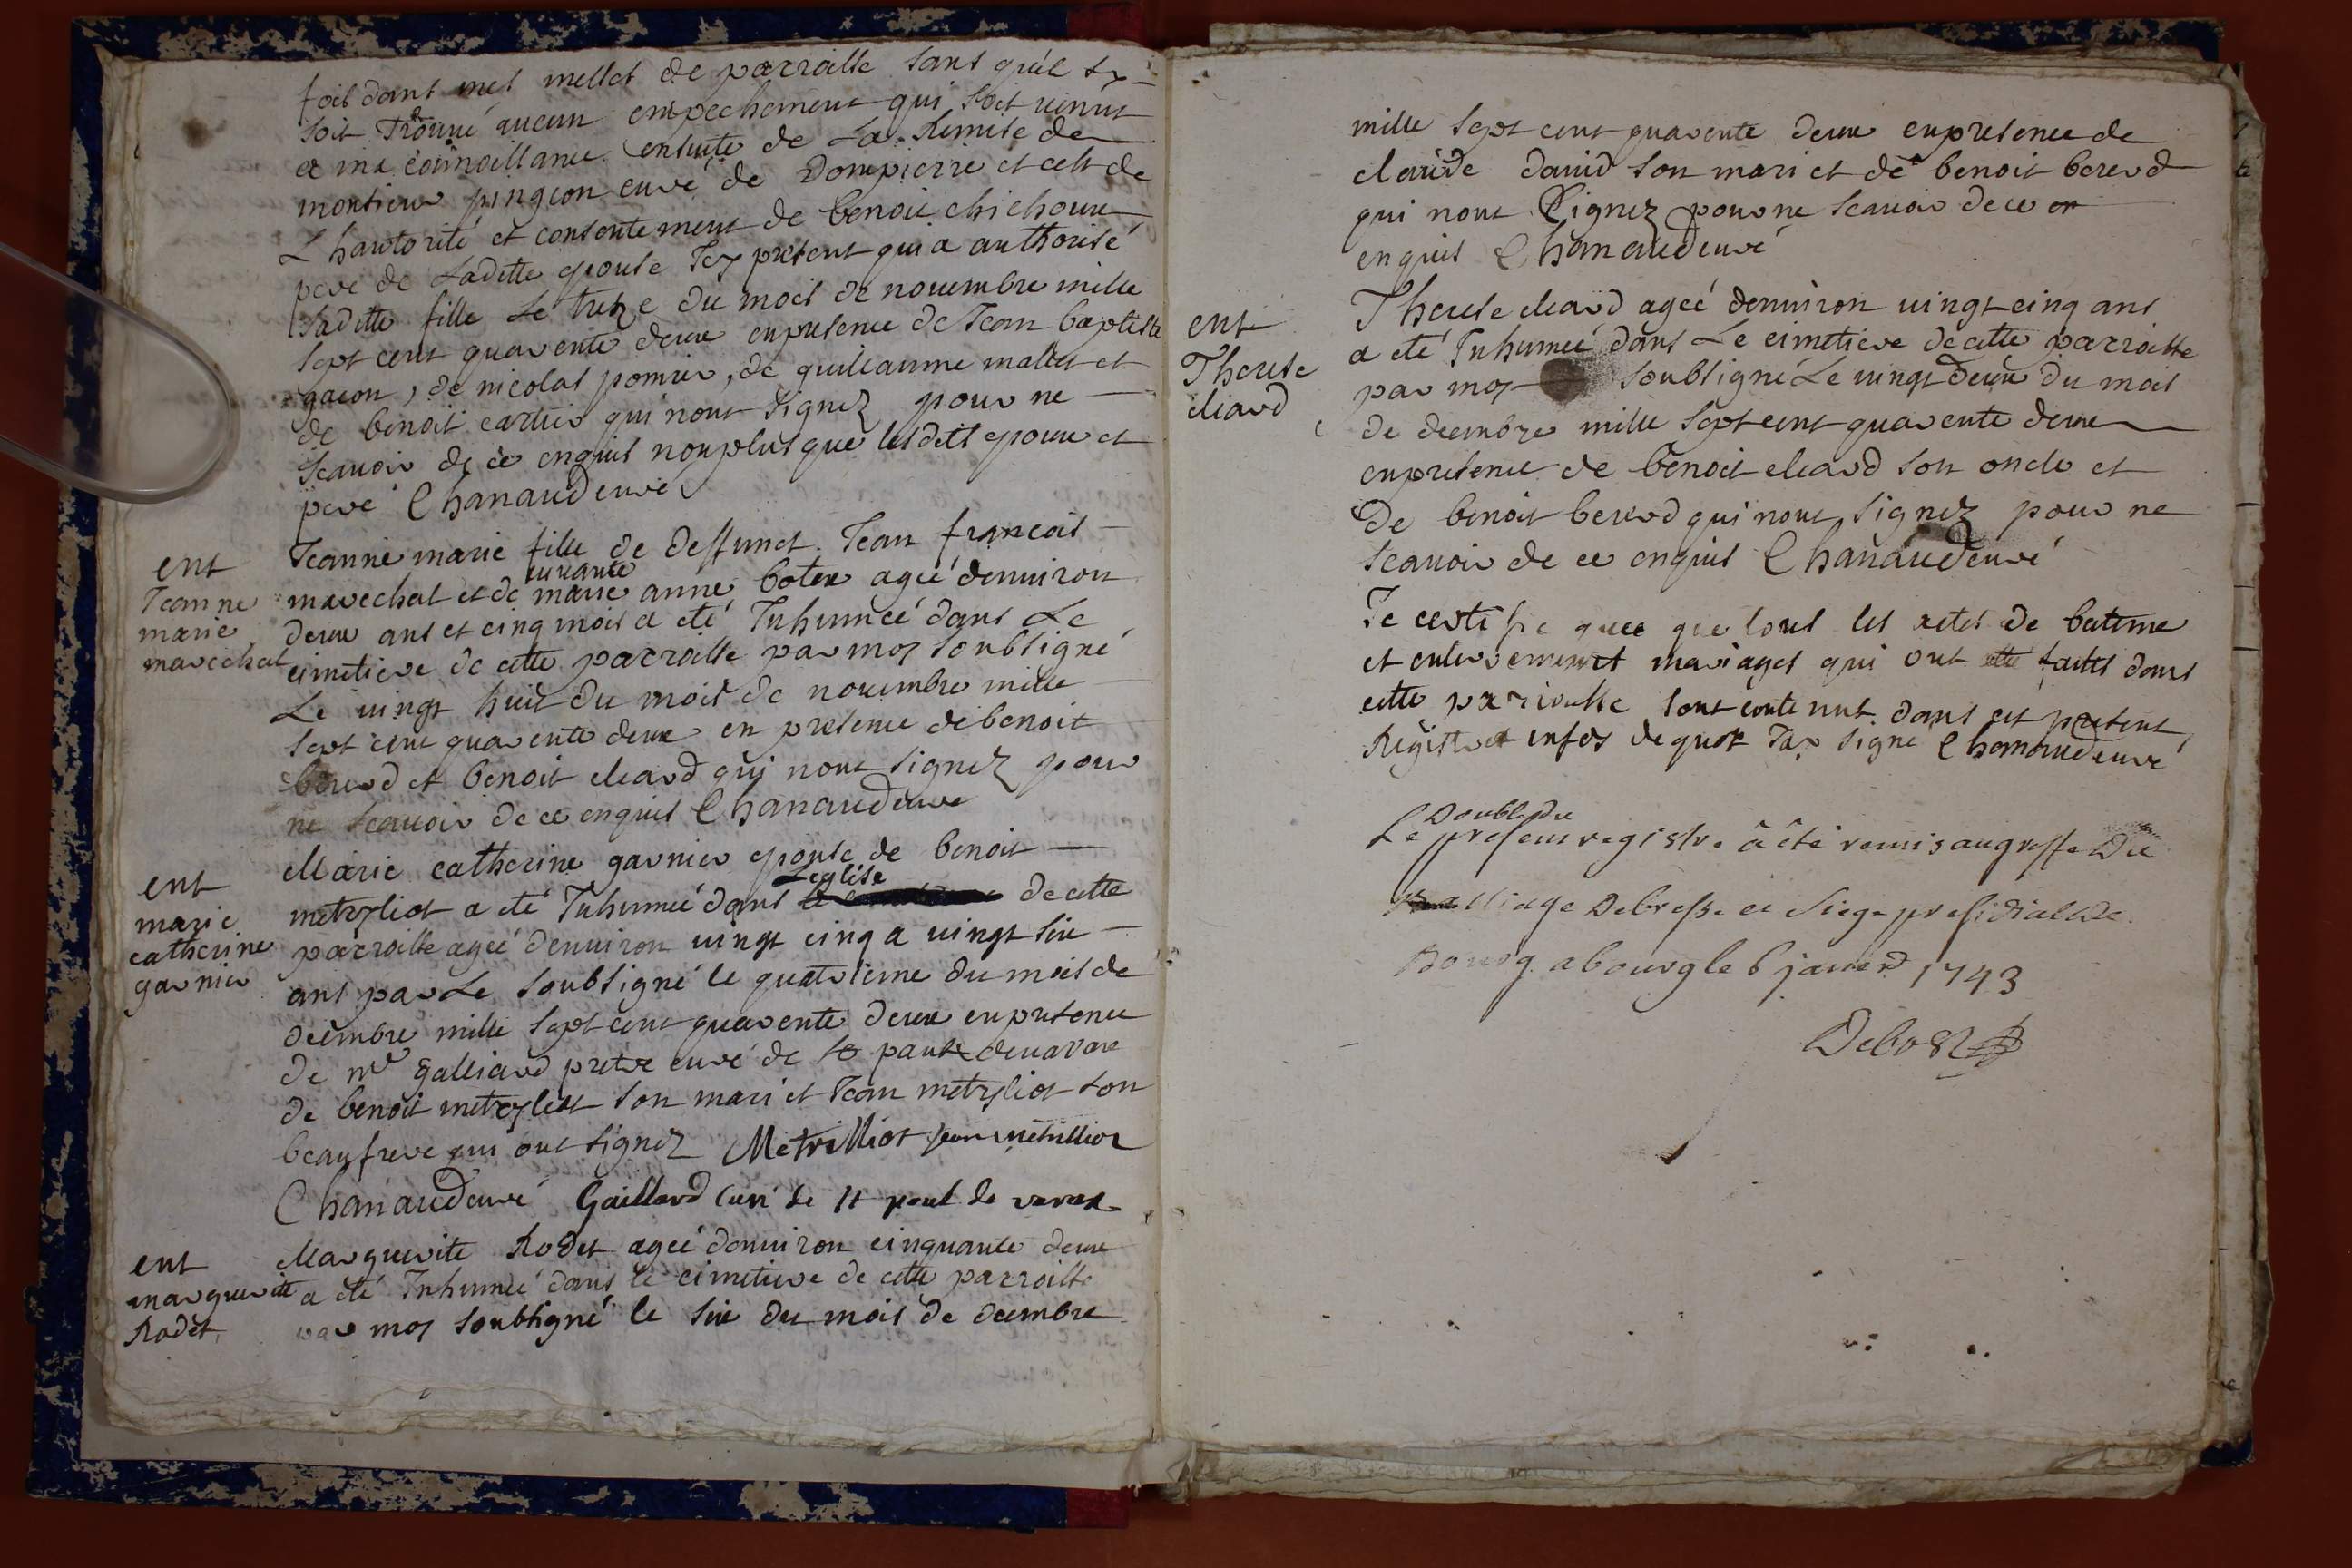 fois dans mes messes de parroisse sans quil sy
soit trouvé aucun empechement qui soit venus
a ma connoissance ensuite de La Remise de
monsieur pingeon curé de Dompierre et cest de
L hautorité et consentement de benoit chichoux
pere de Ladette epouse Icy present qui a authorisé
sadette fille Le treze du mois de novembre mille
sept cent quarente deux en presence de Jean baptiste
gacon, de nicolas pomier, de guilleaume mallet et
de benoit cartier qui nont signez pour ne
scavoir de ce enquis nonplus que lesdits epoux et
pere Chanaud curé
ent
Jeanne
marie
marechal
Jeanne marie fille de deffunct Jean francois
vivante
marechal et de marie anne botex ageé denviron
deux ans et cinq mois a eté Inhumeé dans Le
cimetiere de cette parroisse par moy soubsigné
Le vingt huit du mois de novembre mille
sept cent quarente deux en presence de benoit
bererd et benoit cleard qui nont signez pour
ne scavoir de ce enquis Chanaud curé
ent
marie
catherine
garnier
Marie catherine garnier epouse de benoit
Leglise
metrylliot a eté Inhumeé dans de cette
parroisse ageé denviron vingt cinq a vingt six
ans par Le soubsigné le quatrieme du mois de
decembre mille sept cent quarente deux en presence
de mr galliard pretre curé de st paul de varax
de benoit metrylliot son mari et Jean metrylliot son
beaufrere qui ont signez Metrilliot Jean metrilliot
Chanaud curé Gaillard Curé de st paul de varax
ent
marguerite
Rodet
Marguerite Rodet ageé denviron cinquante deux
a eté Inhumeé dans le cimetiere de cette parroisse
par moy soubsigné le six du mois de decembre
mille sept cent quarente deux en presence de
claude david son mari et de benoit bererd
qui nont signez pour ne scavoir de ce
enquis Chanaud curé
ent
Therese
cleard
Therese cleard ageé denviron vingt cinq ans
a eté Inhumeé dans Le cimetiere de cette parroisse
par moy soubsigné Le vingt deux du mois
de decembre mille sept cent quarente deux
en presence de benoit cleard son oncle et
de benoit bererd qui nont signez pour ne
scavoir de ce enquis Chanaud curé
Je certifie que que tous les actes de bateme
et enterrement mariages qui ont eté faites dans
cette parroisse sont contenus dans cet present
Registre en foy de quoy Jay signé Chanaud curé
Double du
Le present registre a été remis au greffe Du
Bailliage De bresse et siege presidial De
Bourg a bourg le 6 janvier 1743
Debost